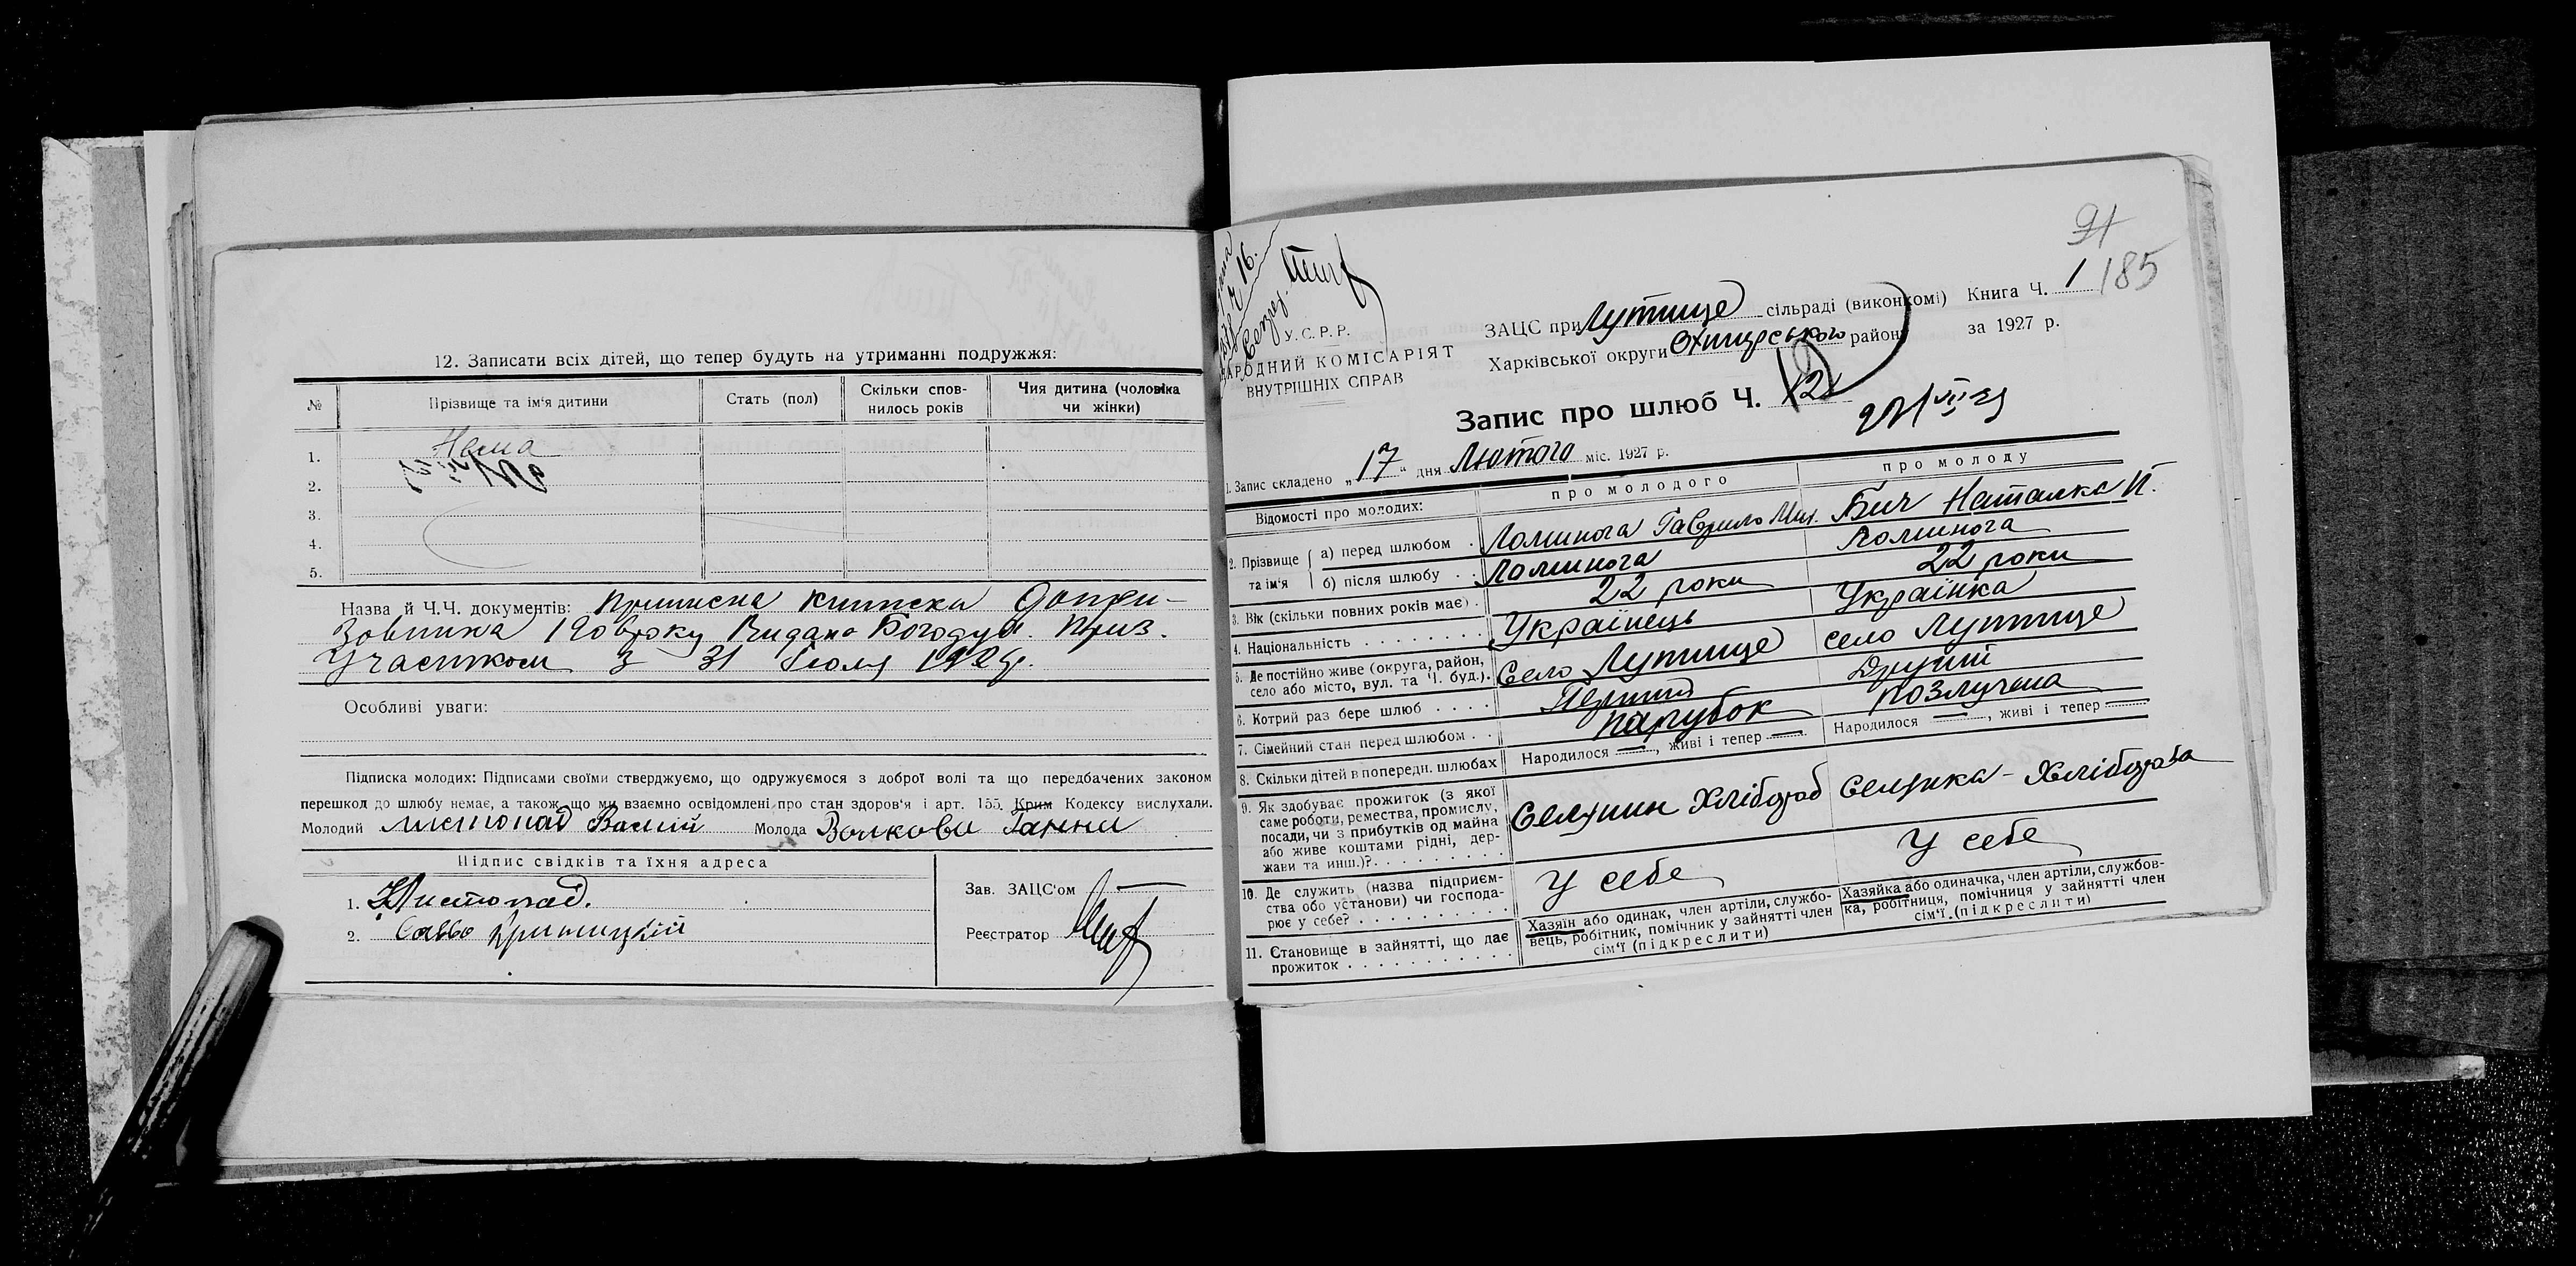 12. Записати всіх дітей, що тепер будуть на утриманні подружжя:
№ Прізвище та ім'я дитини Стать (пол) Скільки спов-нилось років Чия дитина (чоловіка чи жінки)
1. Нема
2.
3.
4.
5.
Назва й Ч.Ч. документів: приписна книжка допри-
зовника 190 року Видана Богодух. Приз.
Участком з 31
Особливі уваги:
Підписка молодих: Підписами своїми стверджуємо, що одружуємося з доброї волі та що передбачених законом
перешкод до шлюбу немає, а також що ми взаємно освідомлені про стан здоров'я і арт. 155 Крим Кодексу вислухали.
Молодий Листопад Василій Молода Волкова Ганна
Підпис свідків та їхня адреса
1. Листопад.
2. Савва Криницкій
Зав. ЗАЦС'ом —
Реєстратор
91
185
У.С.Р.Р.
НАРОДНИЙ КОМІСАРІЯТ
ВНУТРІШНІХ СПРАВ
ЗАЦС при Лутище сільраді (виконкомі) Книга Ч. 1
Харківської округи Охтирського району за 1927 р.
Запис про шлюб Ч. 12
1. Запис складено „17" дня Лютого міс. 1927 р.
Відомості про молодих: про молодого про молоду
2. Прізвище та ім'я
а) перед шлюбом Ломинога Гаврило Мих. Бич Наталка И.
б) після шлюбу Ломинога Ломинога
3. Вік (скільки повних років має) 22 роки 22 роки
4. Національність Українець Українка
5. Де постійно живе (округа, район, село або місто, вул. та Ч. буд.). Село Лутище село Лутище
6. Котрий раз бере шлюб Перший Другий
7. Сімейний стан перед шлюбом парубок розлучена
8. Скільки дітей в попередн. шлюбах Народилося —, живі і тепер — Народилося —, живі і тепер —
9. Як здобуває прожиток (з якої саме роботи, ремества, промислу, посади, чи з прибутків од майна або живе коштами рідні, дер-жави та инш.)? Селянин Хлібороб Селянка - Хлібороба
10. Де служить (назва підприєм-ства обо установи) чи господа-рює у себе? У себе У себе
11. Становище в зайнятті, що дає прожиток
Хазяїн або одинак, член артіли, службо-вець, робітник, помічник у зайнятті член сім'ї (підкреслити)
Хазяйка або одиначка, член артіли, службов-ка, робітниця, помічниця у зайнятті член сім'ї. (підкреслити)